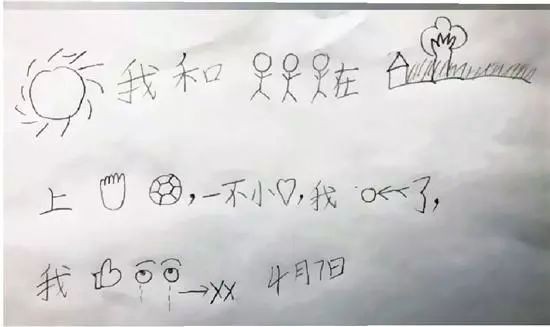 我和在
上,一不小,我了,
我→XX 4月7日